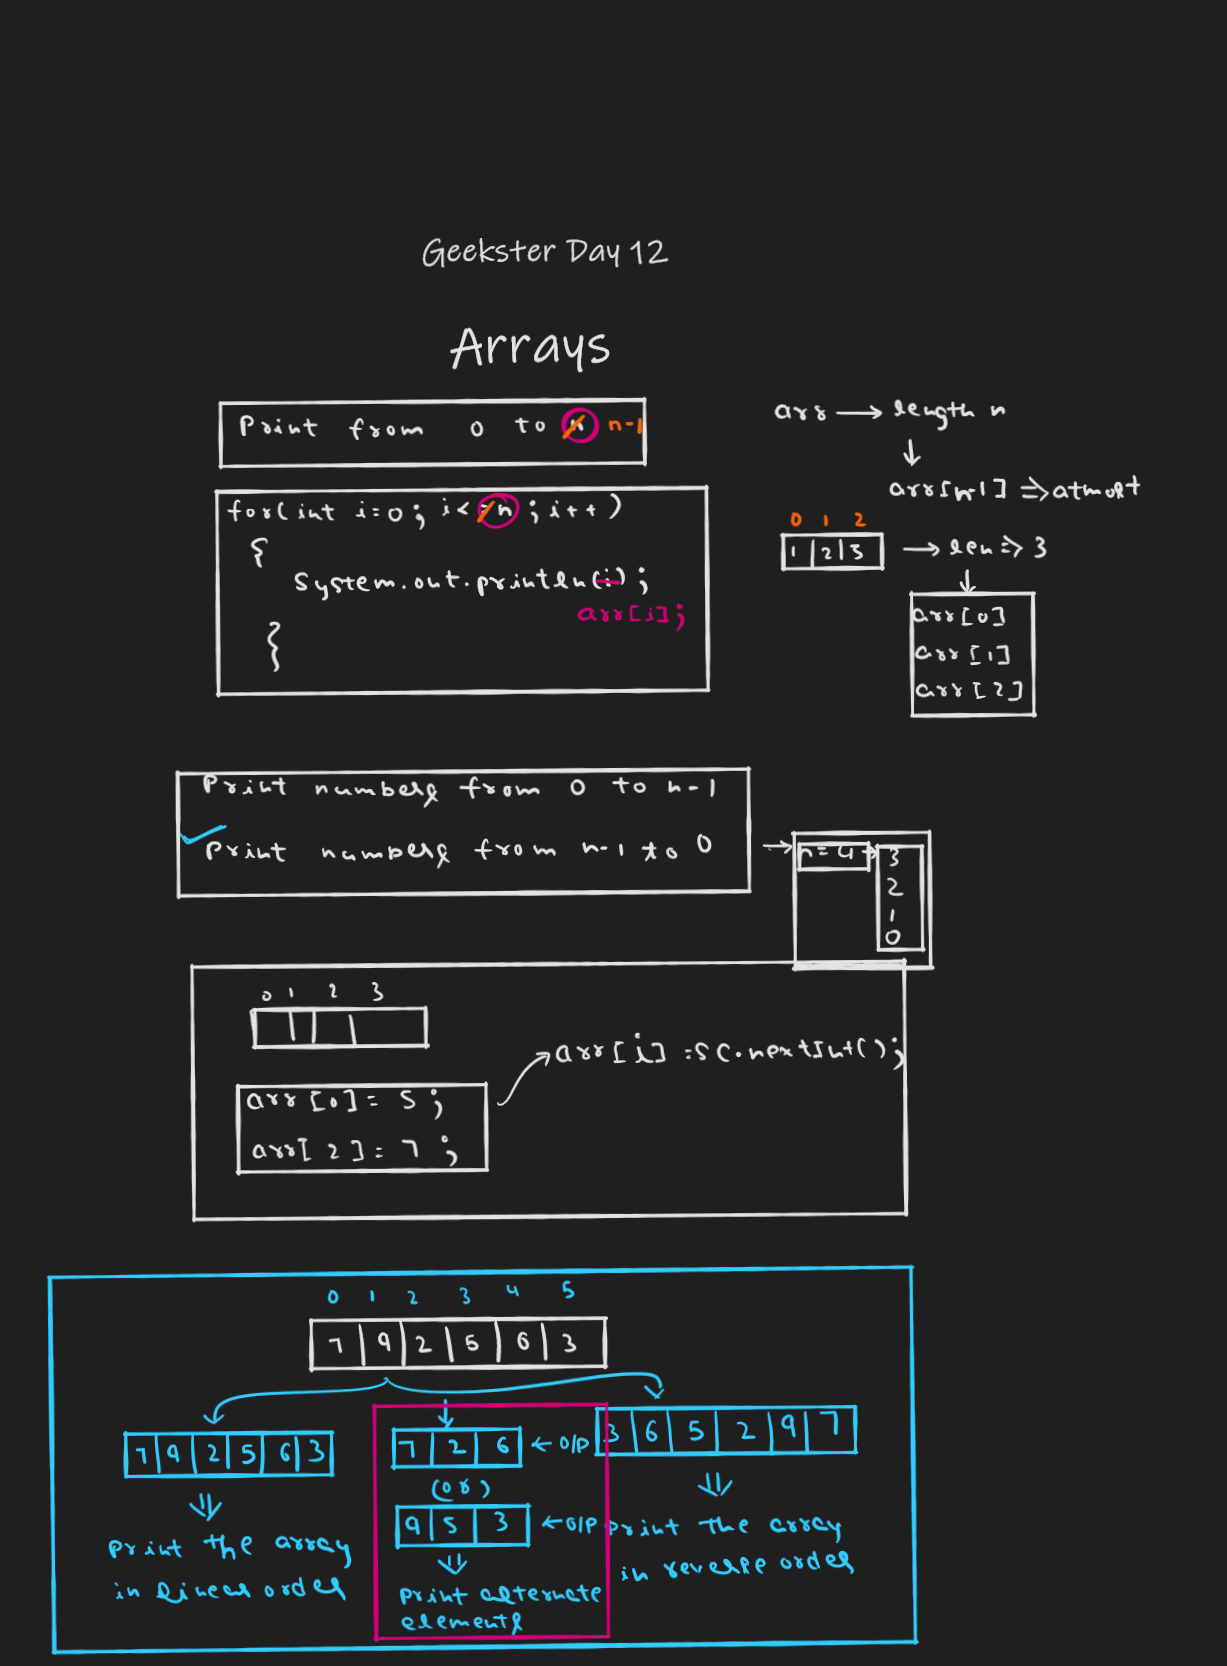 Geekster Day 12
Arrays
Print from 0 to n n-1
for(int i=0; i<=n; i++)
{
System.out.println(i);
arr[i];
{
arr → length n
↓
arr[n-1] ⇒ atmost
0 1 2
1 2 3 → len ⇒ 3
↓
arr[0]
arr[1]
arr[2]
Print numbers from 0 to n-1
✓ Print numbers from n-1 to 0 →
n=4 →
3
2
1
0
0 1 2 3
arr[0]= 5;
arr[2]= 7;
→ arr[i] =sc.nextInt();
0 1 2 3 4 5
7 9 2 5 6 3
7 9 2 5 6 3
⇓
print the array
in linear order
7 2 6 ← O/P
(or)
9 5 3 ← O/P
⇓
print alternate
elements
3 6 5 2 9 7
⇓
print the array
in reverse order